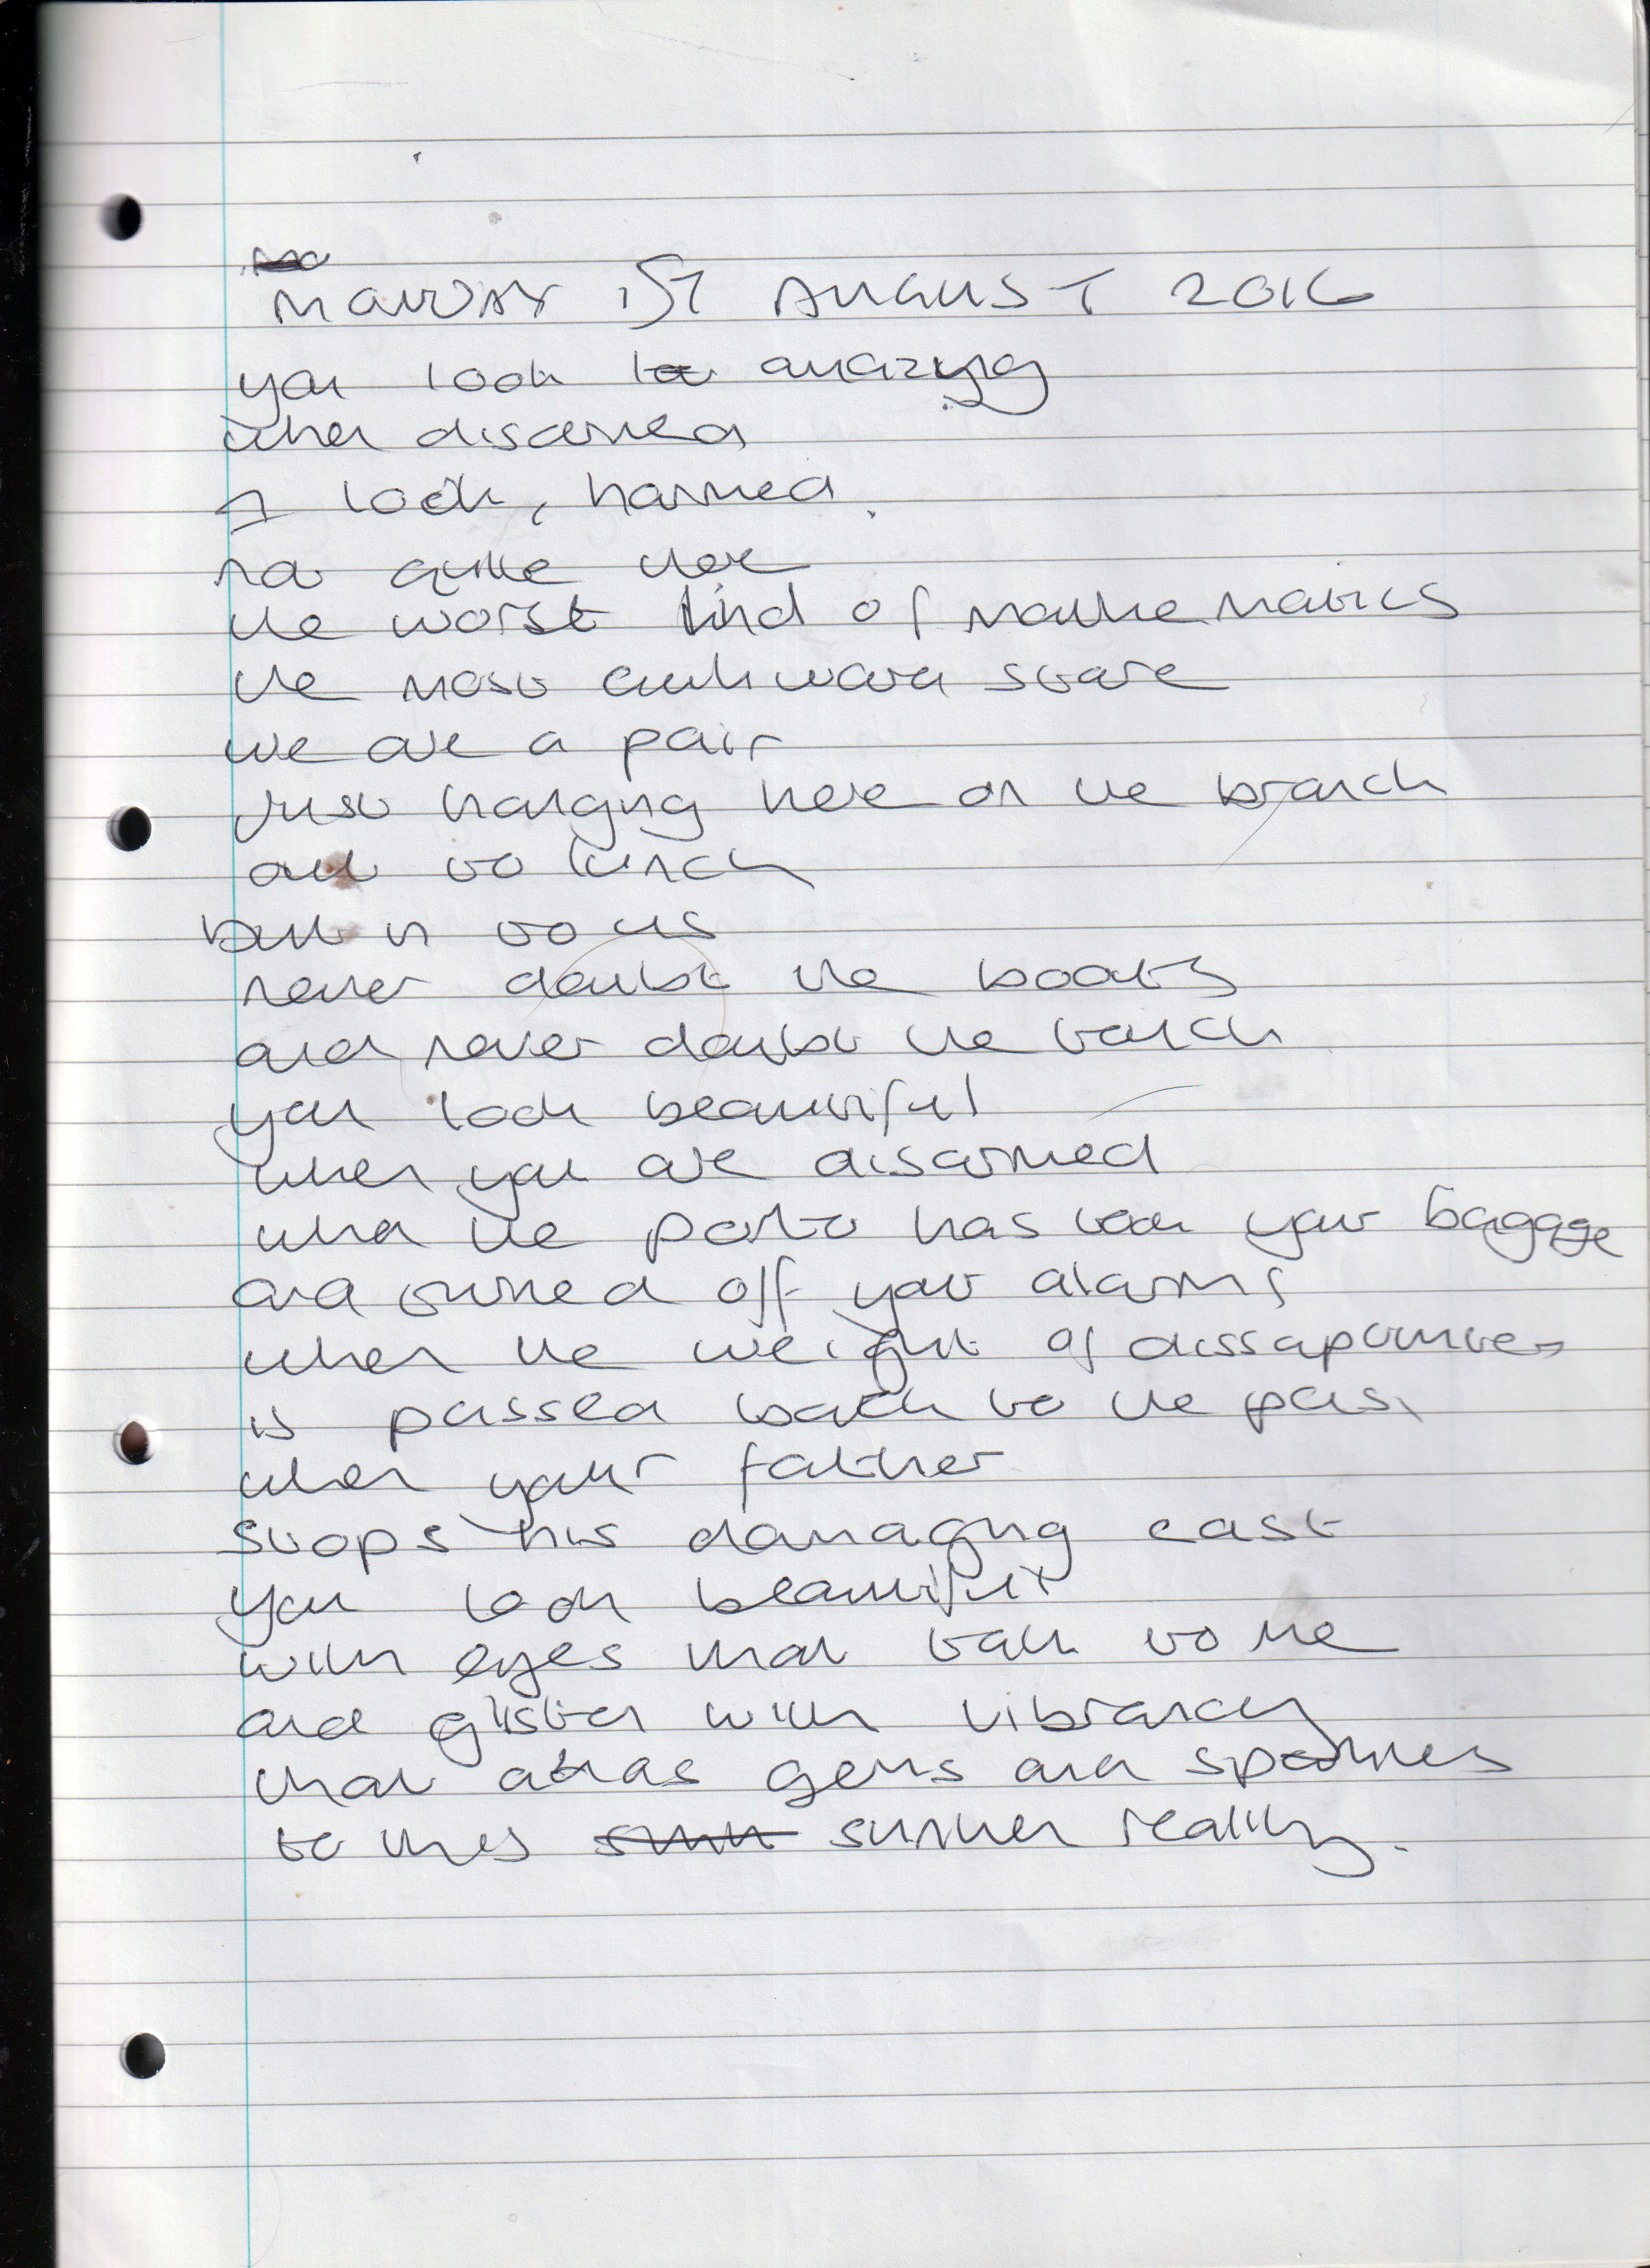 MONDAY 1ST AUGUST 2016
you look amazing
when disarmed
I look, harmed.
not quite there
the worst kind of mathematics
the most awkward stare
we are a pair
just hanging here on the branch
out to lunch
but in to us
never doubt the boots
and never doubt the
you look beautiful
when you are disarmed
when the porter has took your baggage
and turned off your alarms
when the weight of
is passed back to the past
when your father
stops his damaging cast
you look beautiful
with eyes that talk to me
and glisten with vibrancy
that adds gems and sparkles
to this summer reality.